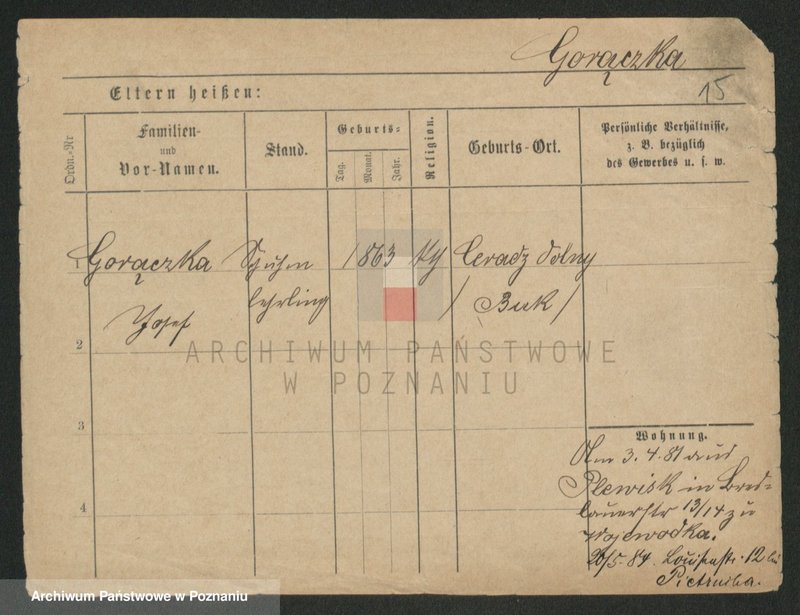 Gorączka
15
Eltern heißen:
Ordn.-Nr
Familien-
und
Vor-Namen.
Stand.
Geburts-
Tag.
Monat.
Jahr.
Religion.
Geburts-Ort.
Persönliche Verhältnisse,
z. B. bezüglich
des Gewerbes u. s. w.
1
Gorączka
Schuhm
1863
Ceradz dolny
lehrling
/ Buk /
Josef
2
ARCHIWUM PAŃSTWOWE
W POZNANIU
3
Wohnung.
Am 3.4.81 aus
Plewisk in Bres-
4
lauerstr 13/14 zu
Wojewodka.
26/5. 84. Louisenstr. 12 bei
Pietruska.
Archiwum Państwowe w Poznaniu